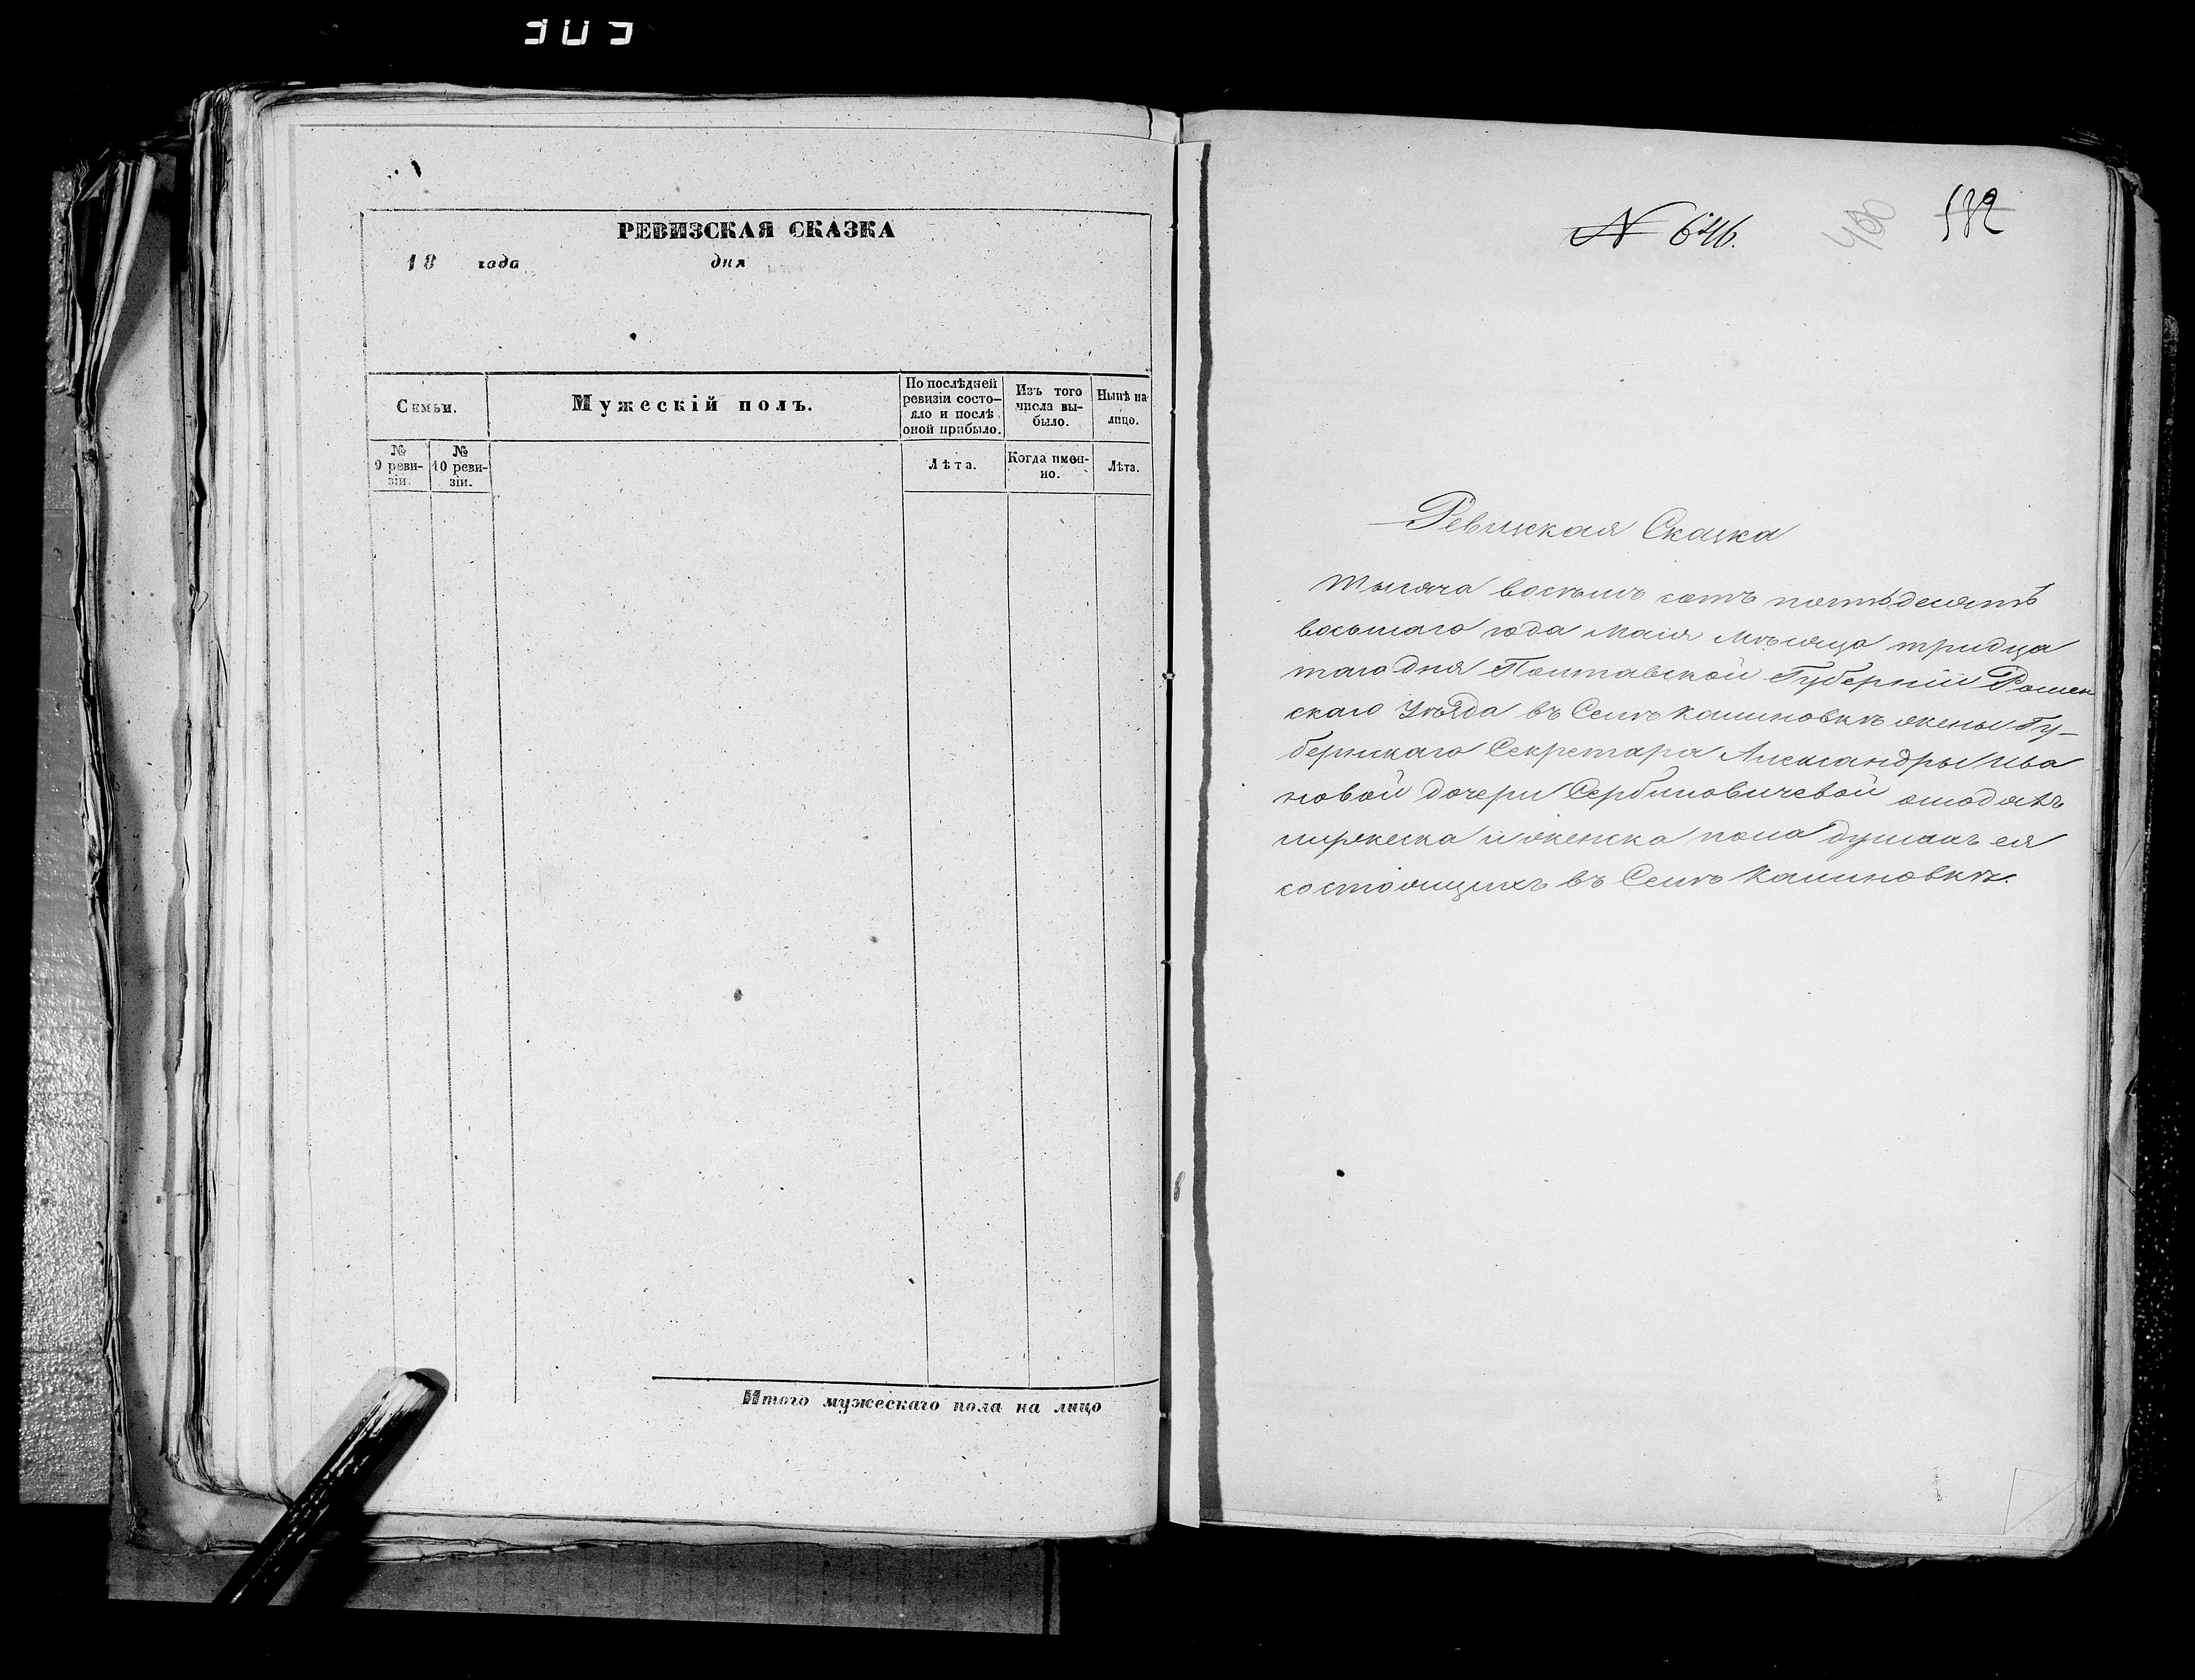 РЕВИЗСКАЯ СКАЗКА
18 года дня
Семьи.
Мужескій полъ.
По послѣдней
ревизіи состо-
яло и послѣ
оной прибыло.
Изъ того
числа вы-
было.
Нынѣ на
лицо.
№
9 реви-
зіи.
№
10 реви-
зіи.
Лѣта.
Когда имен-
но.
Лѣта.
Итого мужескаго пола на лицо
N 646.
400
532
Ревизская Сказка
Тысяча восемь сотъ пятьдесятъ
восьмаго года Маія Мѣсяца тридца
таго дня Полтавской Губерніи Ромен
скаго Уѣзда въ Селѣ Калиновкѣ жены Гу-
бернскаго Секретаря Александры Ива
новой дочери Сербиновичевой о людяхъ
мужеска и женска пола душахъ ея
состоящихъ въ Селѣ Калиновкѣ.